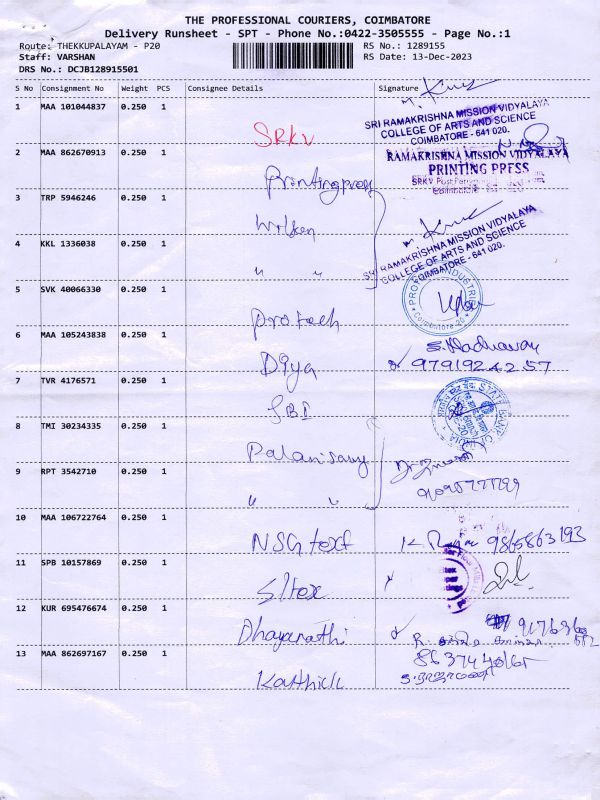 THE PROFESSIONAL COURIERS, COIMBATORE
Delivery Runsheet - SPT - Phone No.:0422-3505555 - Page No.:1
Route: THEKKUPALAYAM - P20 RS No.: 1289155
Staff: VARSHAN RS Date: 13-Dec-2023
DRS No.: DCJB128915501
S No Consignment No Weight PCS Consignee Details Signature
1 MAA 101044837 0.250 1
SRKV
SRI RAMAKRISHNA MISSION VIDYALAYA
COLLEGE OF ARTS AND SCIENCE
COIMBATORE - 641 020.
2 MAA 862670913 0.250 1
Printing press
RAMAKRISHNA MISSION VIDYALAYA
PRINTING PRESS
3 TRP 5946246 0.250 1
4 KKL 1336038 0.250 1
" "
SRI RAMAKRISHNA MISSION VIDYALAYA
COLLEGE OF ARTS AND SCIENCE
COIMBATORE - 641 020.
5 SVK 40066330 0.250 1
Protech
6 MAA 105243838 0.250 1
Diya
9791924257
7 TVR 4176571 0.250 1
SBI
STATE BANK OF INDIA
8 TMI 30234335 0.250 1
Palanisamy
9 RPT 3542710 0.250 1
" "
10 MAA 106722764 0.250 1
NSG text
9865863193
11 SPB 10157869 0.250 1
12 KUR 695476674 0.250 1
13 MAA 862697167 0.250 1
Karthick